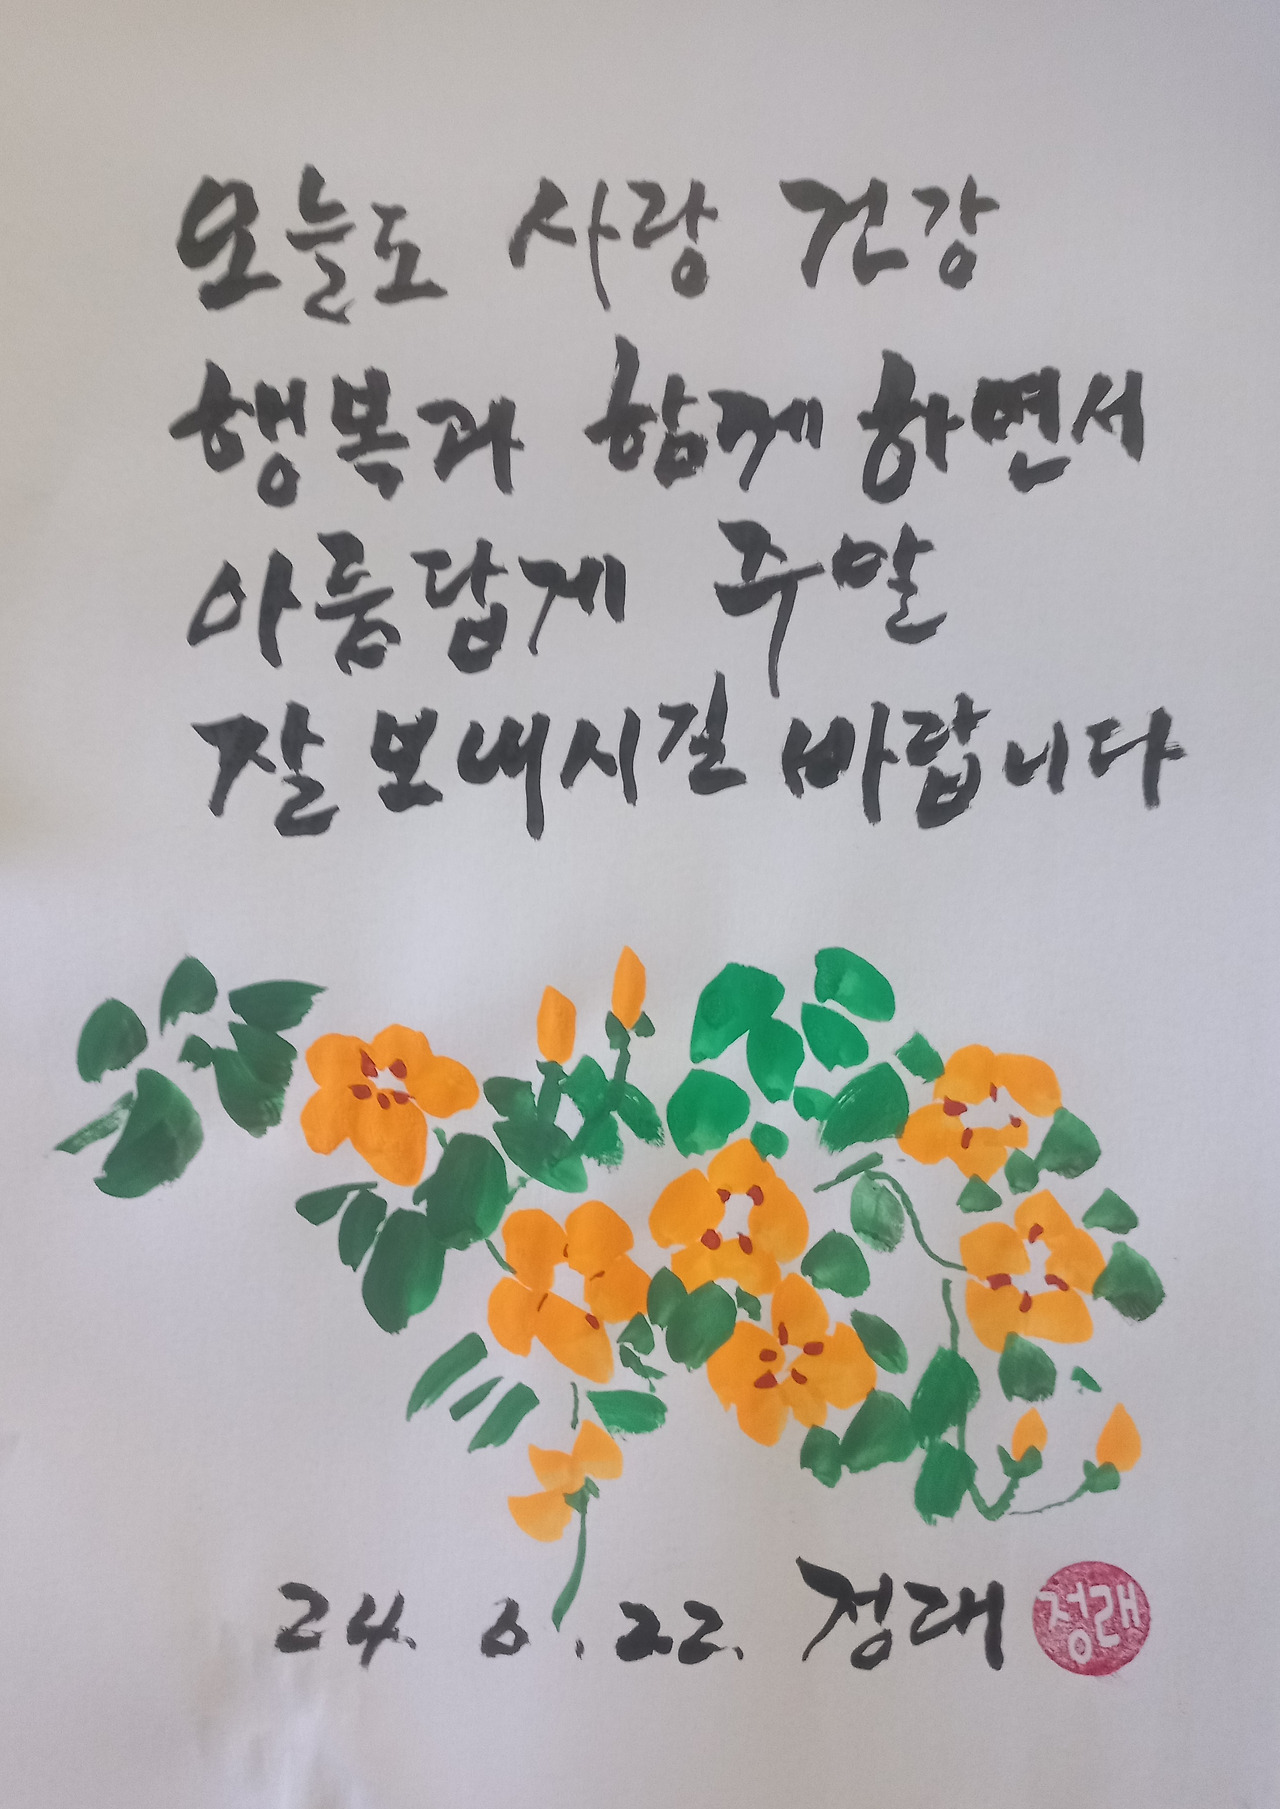 오늘도 사랑 건강
행복과 함께 하면서
아름답게 주말
잘 보내시길 바랍니다
24. 6. 22. 정래
정래